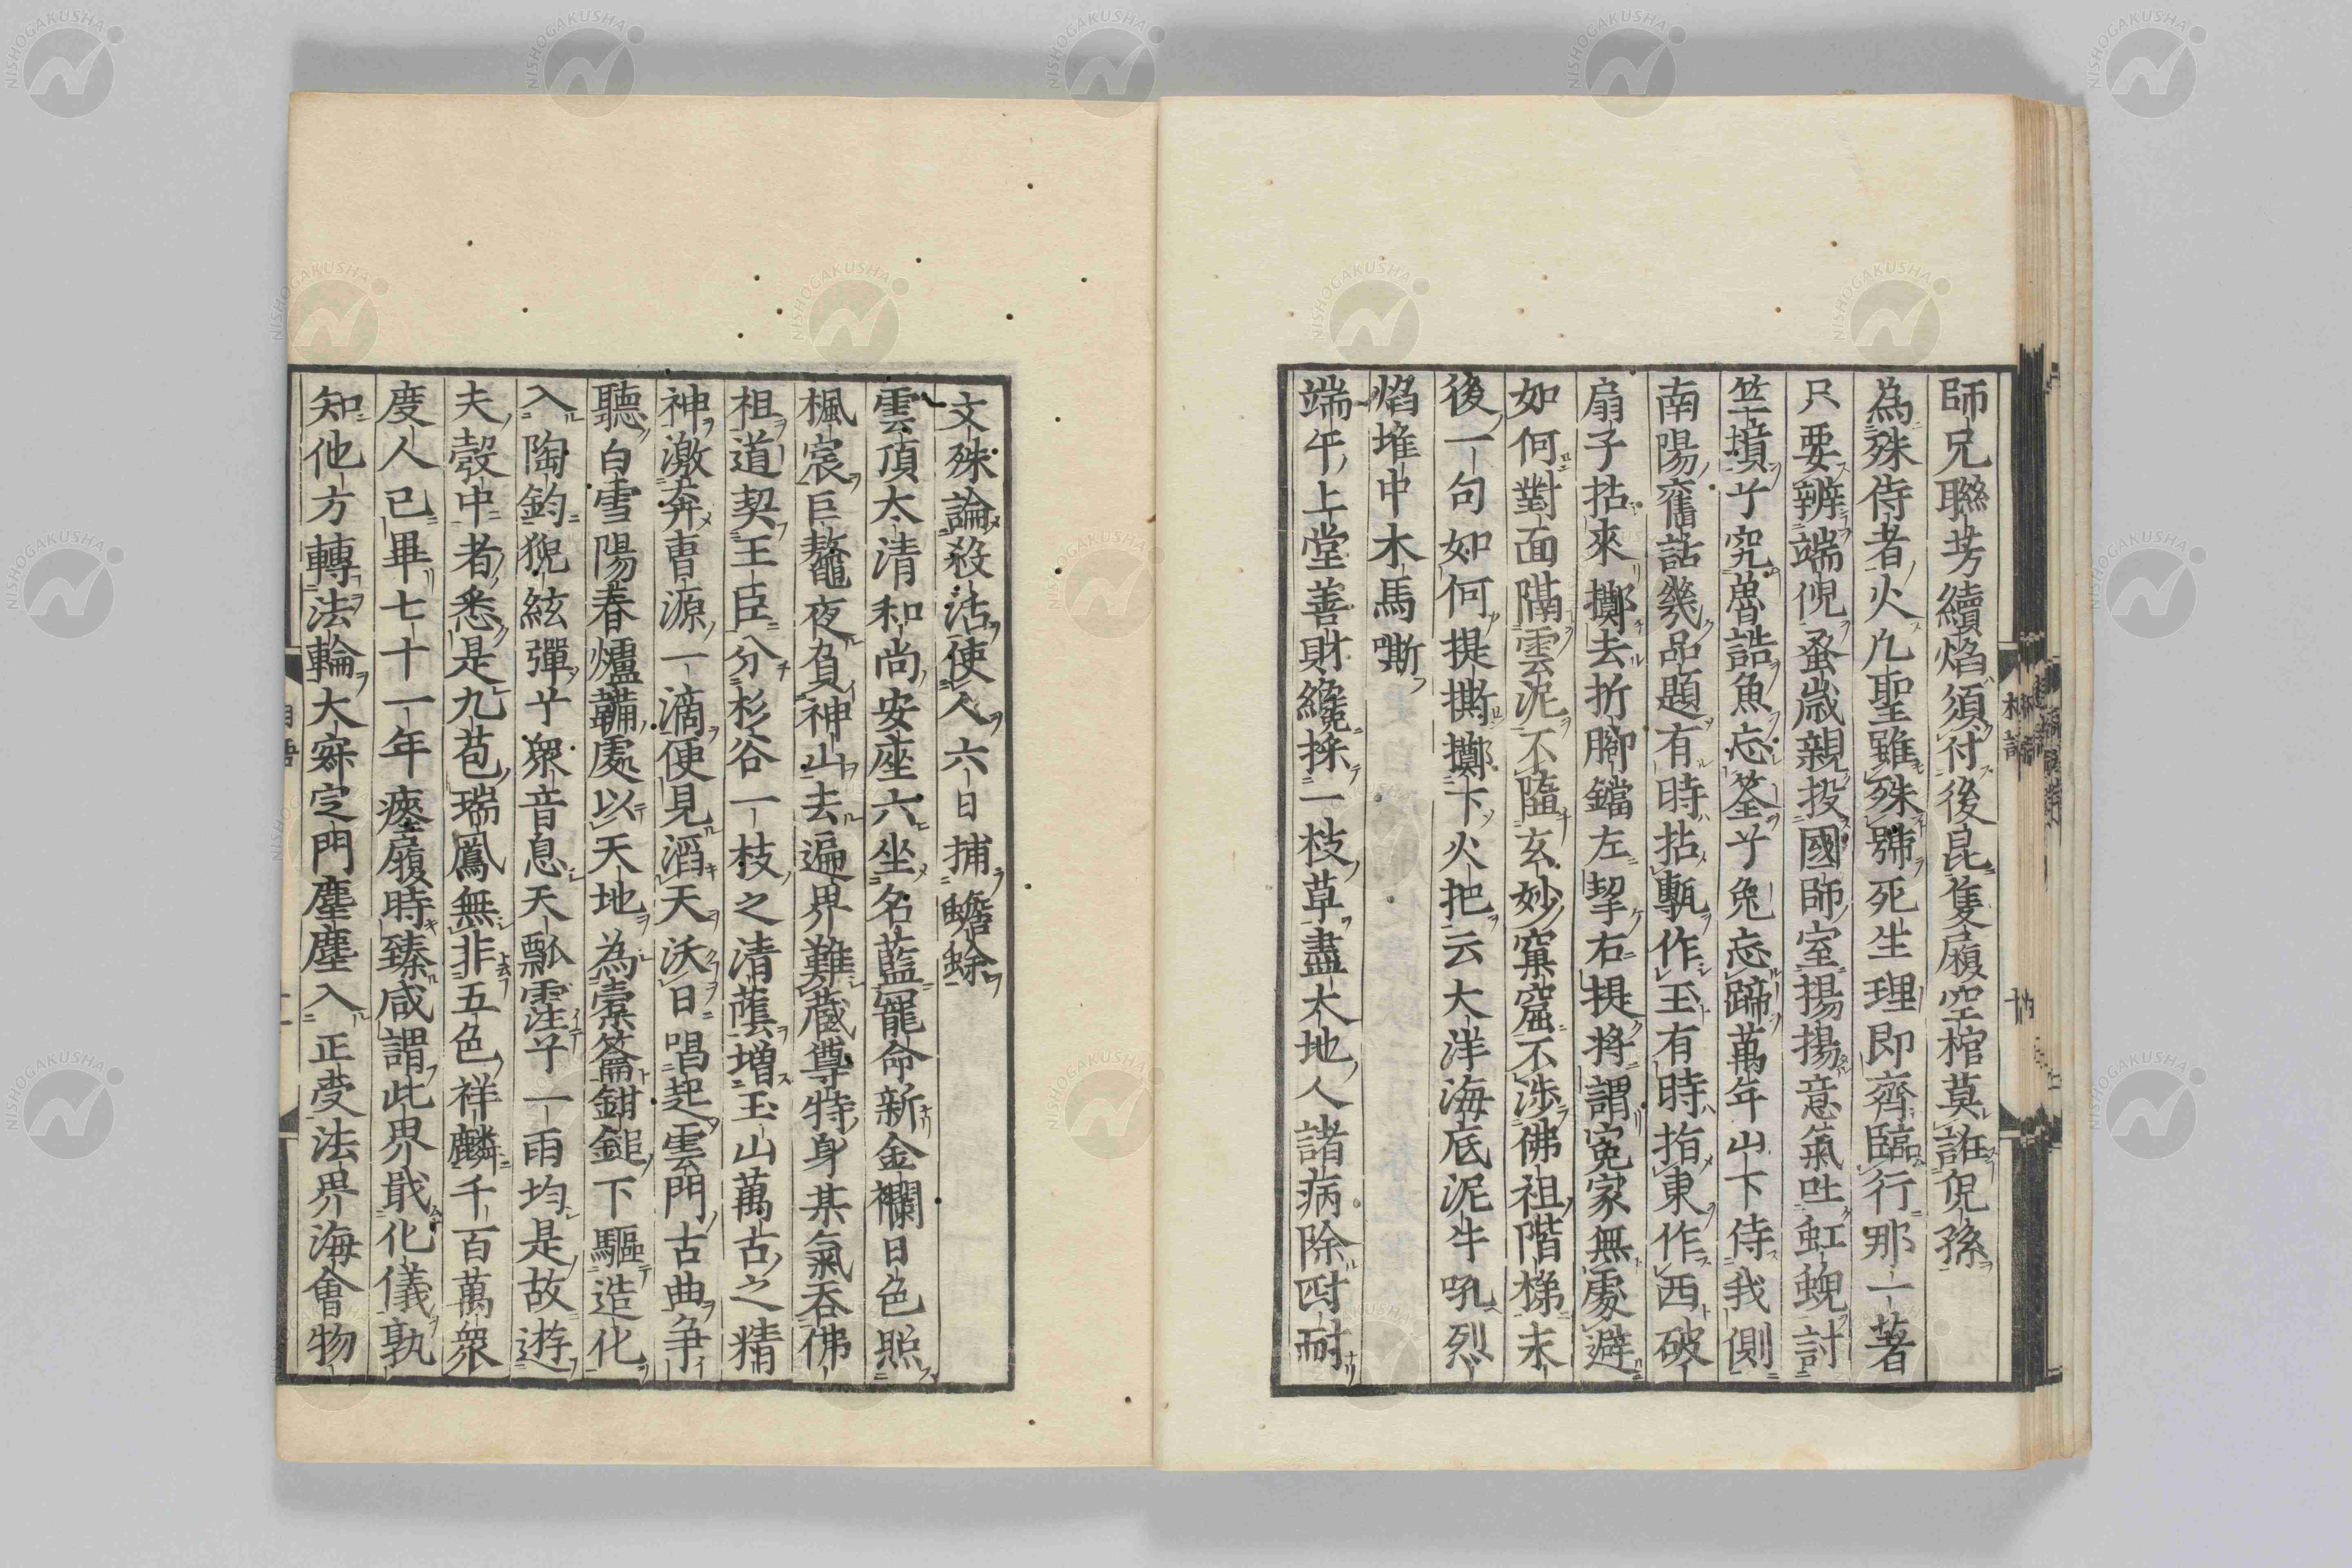 師兄聯芳續焰須付後昆隻履空棺莫誑倪孫
為殊侍者火凡聖雖殊號死生理即齊臨行那一著
只要辨端倪蚤歳親投國師室揚揚意氣吐虹蜺討
竺墳兮究魯誥魚忘筌兮兔忘蹄萬年山下侍我側
南陽舊話幾品題有時拈甎作玉有時指東作西破
扇子拈來擲去折脚鐺左挈右提將謂寃家無處避
如何對面隔雲泥不隨玄妙窠窟不渉佛祖階梯末
後一句如何提撕擲下火把云大洋海底泥牛吼烈
焰堆中木馬嘶
端午上堂善財纔採一枝草盡大地人諸病除酎耐
文殊論殺活使人六日捕蟾蜍
雲頂太清和尚安座六坐名藍寵命新金襴日色照
楓宸巨鼇夜負神山去遍界難藏尊特身某氣呑佛
祖道契王臣分杉谷一枝之清蔭増玉山萬古之精
神激奔曹源一滴便見滔天沃日唱起雲門古曲争
聽白雪陽春爐鞴處以天地為槖籥鉗鎚下驅造化
入陶鈞猊絃彈兮衆音息天瓢霔兮一雨均是故遊
夫彀中者悉是九苞瑞鳳無非五色祥麟千百萬衆
度人已畢七十一年瘞履時臻咸謂此界戢化儀孰
知他方轉法輪大寂定門塵塵入正受法界海會物